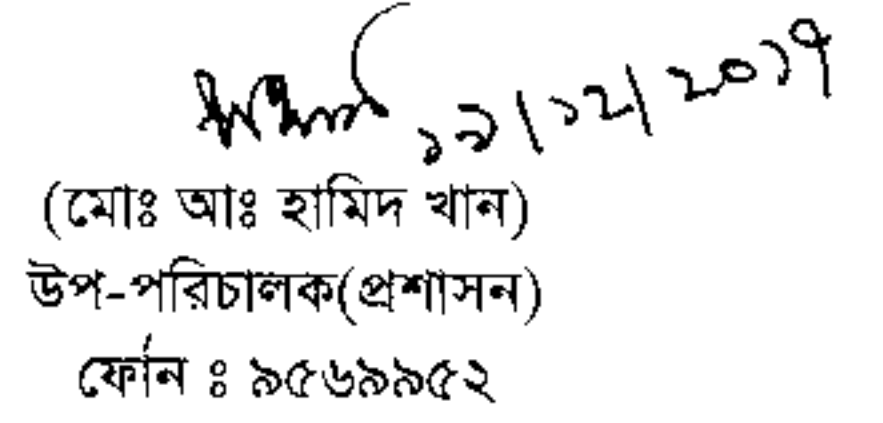 ১৯/১২/২০১৭
(মোঃ আঃ হামিদ খান)
উপ-পরিচালক(প্রশাসন)
ফোন ঃ ৯৫৬৯৯৫২